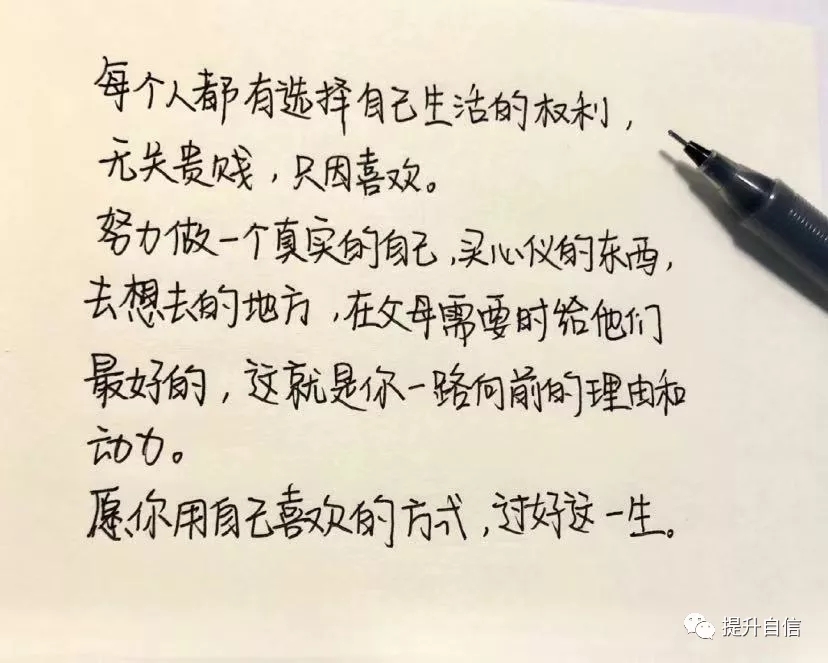 每个人都有选择自己生活的权利，
无关贵贱，只因喜欢。
努力做一个真实的自己，买心仪的东西，
去想去的地方，在父母需要时给他们
最好的，这就是你一路向前的理由和
动力。
愿你用自己喜欢的方式，过好这一生。
提升自信